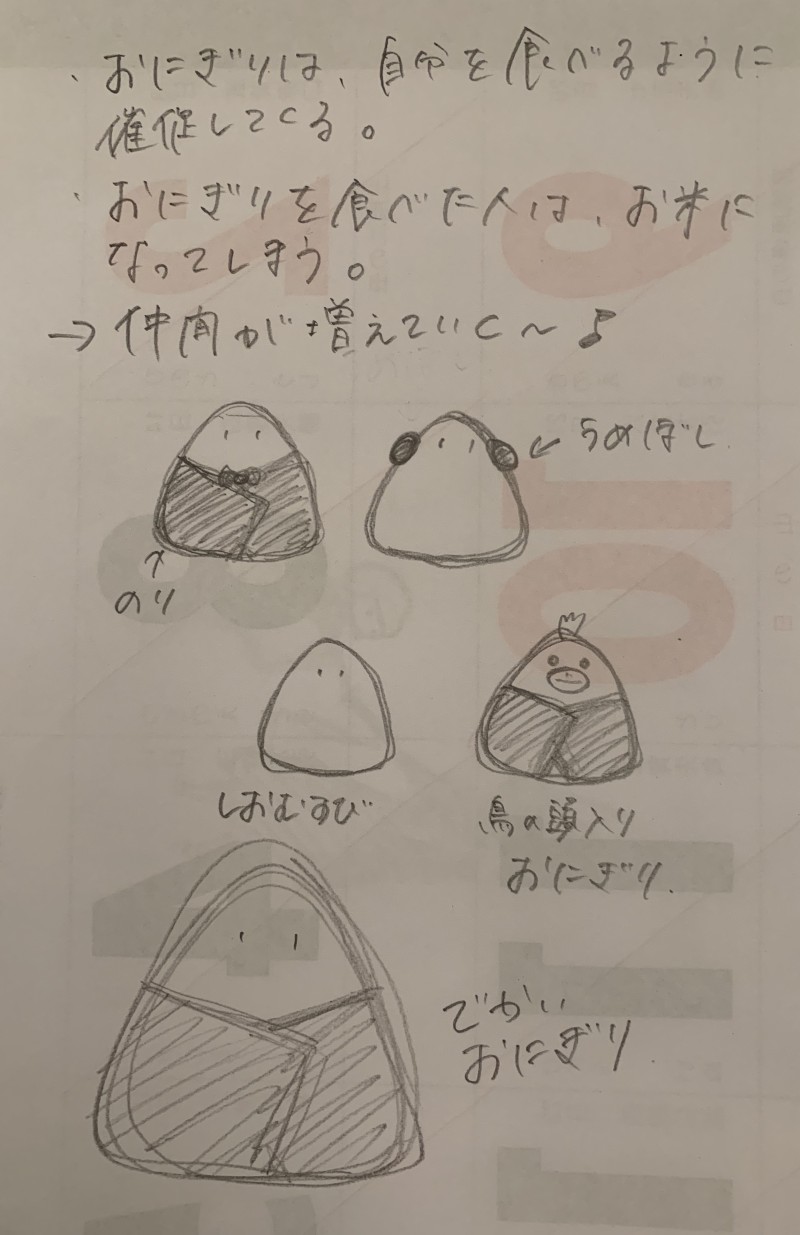 ・おにぎりは、自分を食べるように
催促してくる。
・おにぎりを食べた人は、お米に
なってしまう。
→仲間が増えていく～♪
←うめぼし
↑
のり
しおむすび
鳥の頭入り
おにぎり
でかい
おにぎり